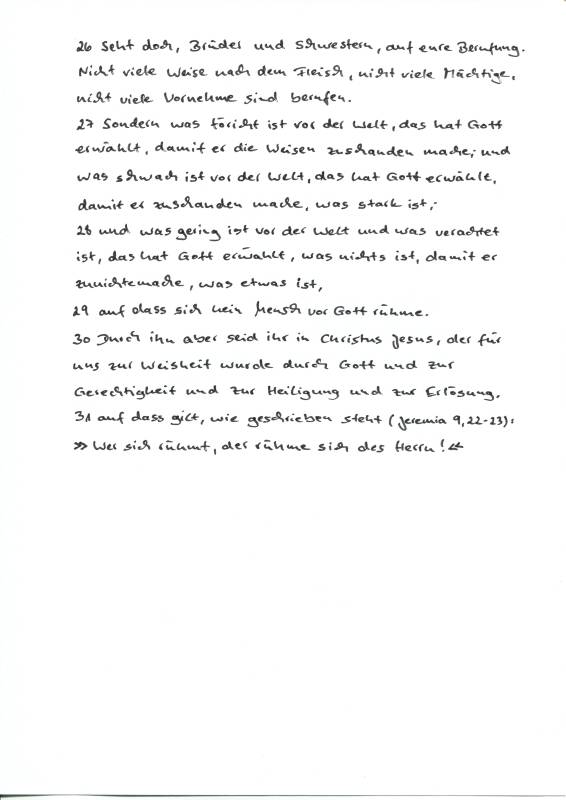 26 Seht doch, Brüder und Schwestern, auf eure Berufung.
Nicht viele Weise nach dem Fleisch, nicht viele Mächtige,
nicht viele Vornehme sind berufen.
27 Sondern was töricht ist vor der Welt, das hat Gott
erwählt, damit er die Weisen zuschanden mache; und
was schwach ist vor der Welt, das hat Gott erwählt,
damit er zuschanden mache, was stark ist;
28 und was gering ist vor der Welt und was verachtet
ist, das hat Gott erwählt, was nichts ist, damit er
zunichtemache, was etwas ist,
29 auf dass sich kein Mensch vor Gott rühme.
30 Durch ihn aber seid ihr in Christus Jesus, der für
uns zur Weisheit wurde durch Gott und zur
Gerechtigkeit und zur Heiligung und zur Erlösung,
31 auf dass gilt, wie geschrieben steht (Jeremia 9,22-23):
»Wer sich rühmt, der rühme sich des Herrn!«